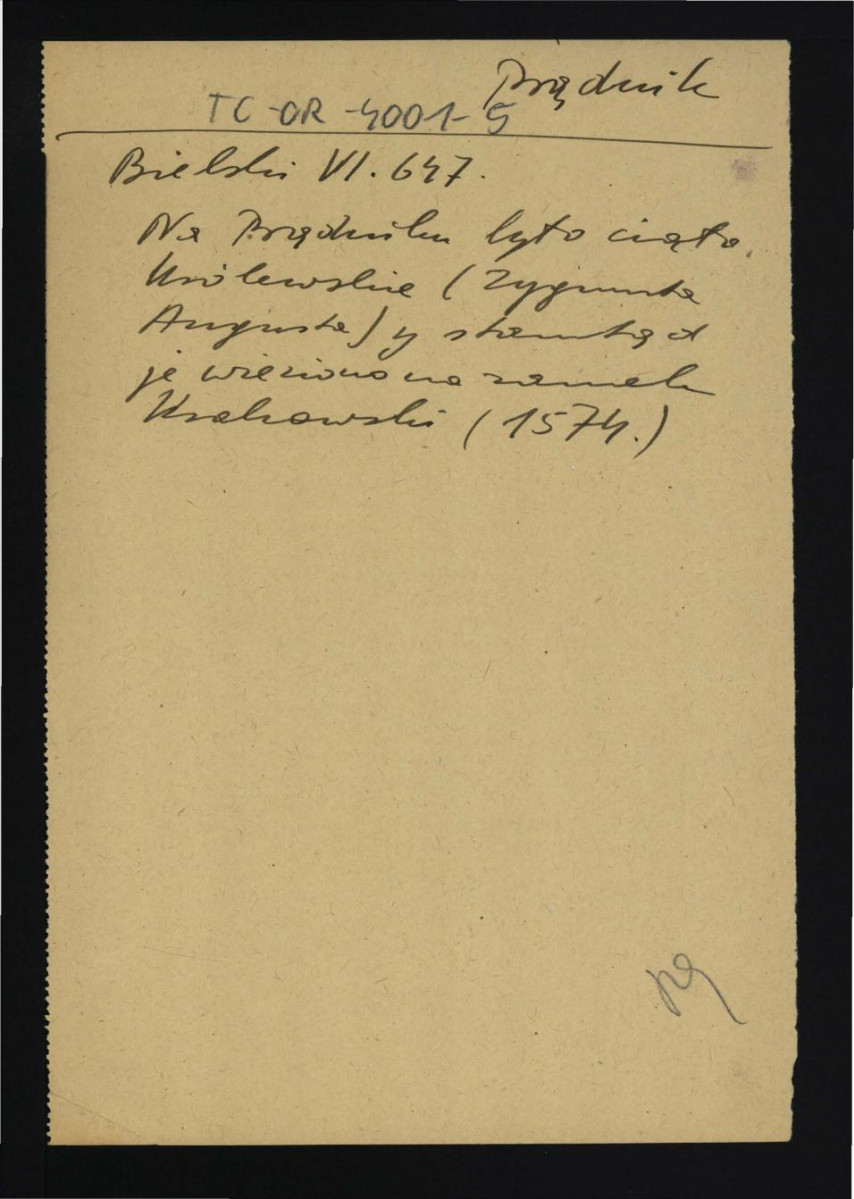 Prądnik
TC-OR-4001-5
Bielski VI. 647.
Na Prądniku było ciało
Królewskie (Zygmunta
Augusta) y stamtąd
je wieziono na zamek
Krakowski (1574.)